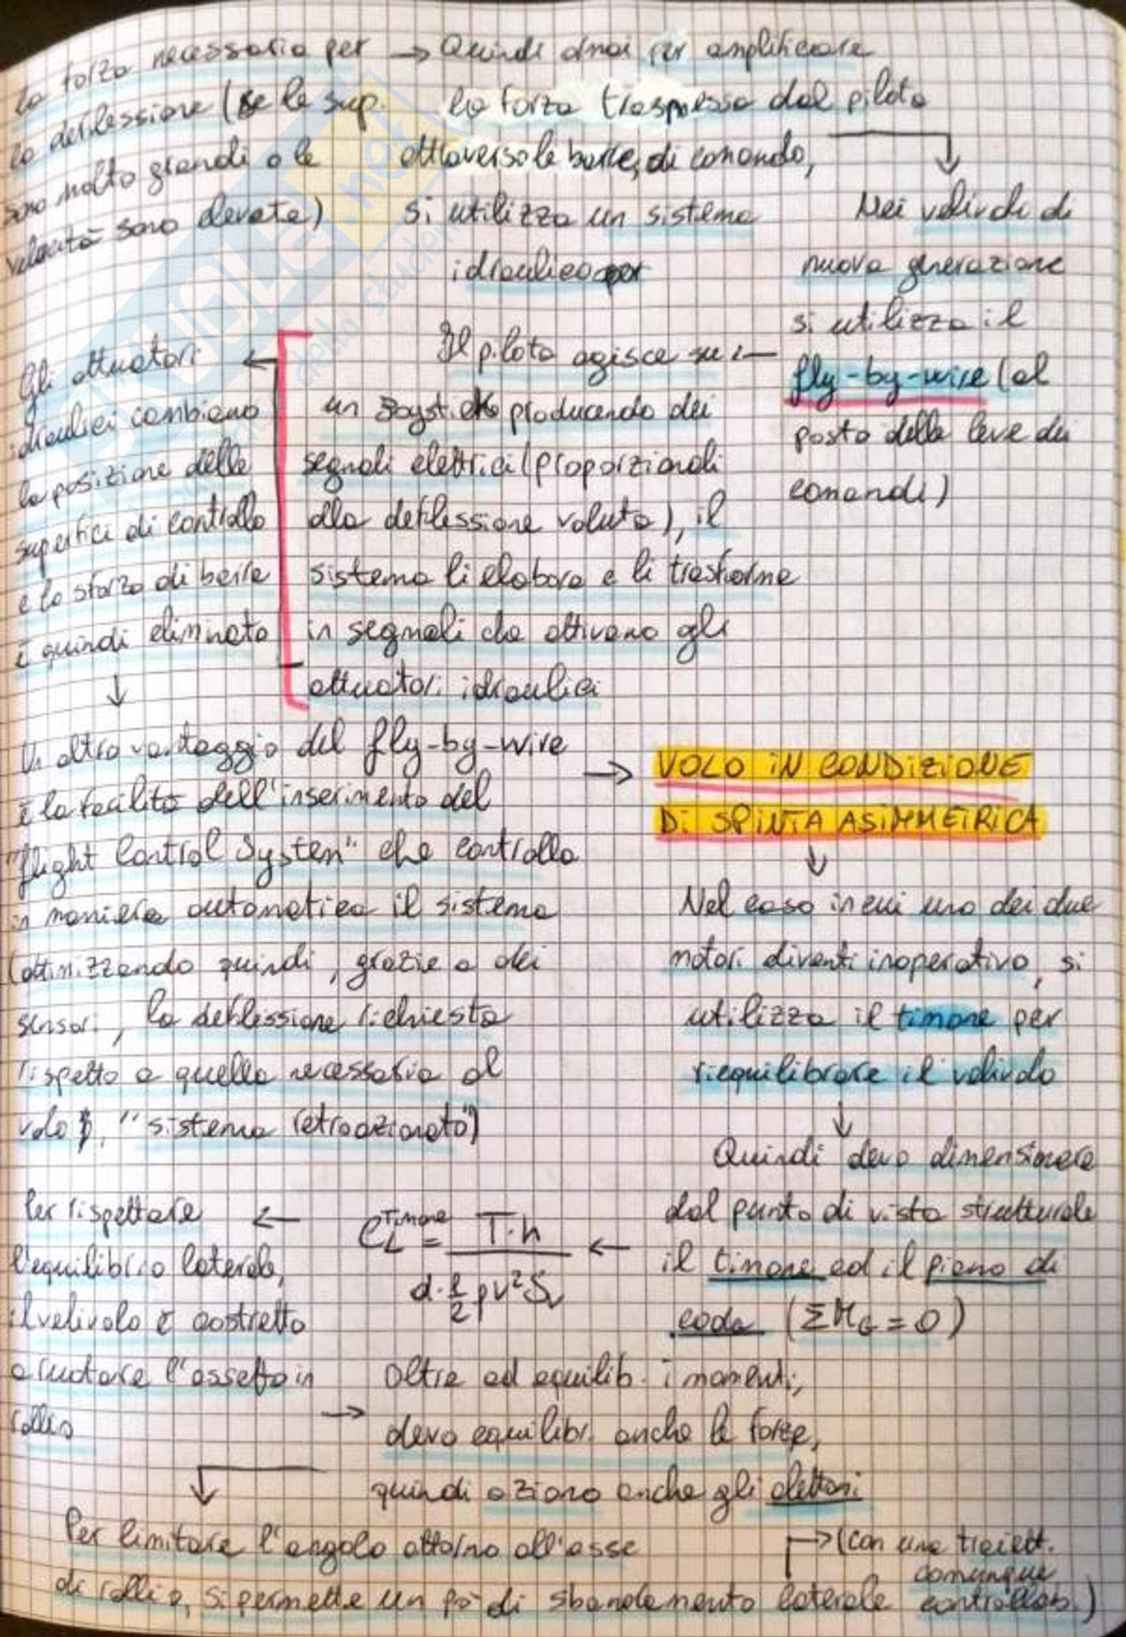 la forza necessaria per
la deflessione (se le sup.
sono molto grandi o le
velocità sono elevate)
→ Quindi ormai per amplificare
la forza trasmessa dal pilota
attraverso le barre di comando,
si utilizza un sistema
idraulico
Nei velivoli di
nuova generazione
si utilizza il
fly-by-wire (al
posto delle leve dei
comandi)
Il pilota agisce su
un joystick producendo dei
segnali elettrici (proporzionali
alla deflessione voluta), il
sistema li elabora e li trasforma
in segnali che attivano gli
attuatori idraulici
Gli attuatori
idraulici cambiano
la posizione delle
superfici di controllo
e lo sforzo di barra
è quindi eliminato
Un altro vantaggio del fly-by-wire
è la facilità dell'inserimento del
"flight Control System" che controlla
in maniera automatica il sistema
(ottimizzando quindi, grazie a dei
sensori, la deflessione richiesta
rispetto a quella necessaria al
volo, "sistema retroazionato")
→ VOLO IN CONDIZIONE
DI SPINTA ASIMMETRICA
Nel caso in cui uno dei due
motori diventi inoperativo, si
utilizza il timone per
riequilibrare il velivolo
Quindi devo dimensionare
dal punto di vista strutturale
il timone ed il piano di
coda (ΣM_G = 0)
C_L^Timone = T·h / d·½ρv²S_v
Per rispettare
l'equilibrio laterale,
il velivolo è costretto
a ruotare l'assetto in
rollio
→ Oltre ad equilib. i momenti,
devo equilibr. anche le forze,
quindi aziono anche gli alettoni
Per limitare l'angolo attorno all'asse
di rollio, si permette un po' di sbandamento laterale
→ (con una traiett.
comunque
controllab.)